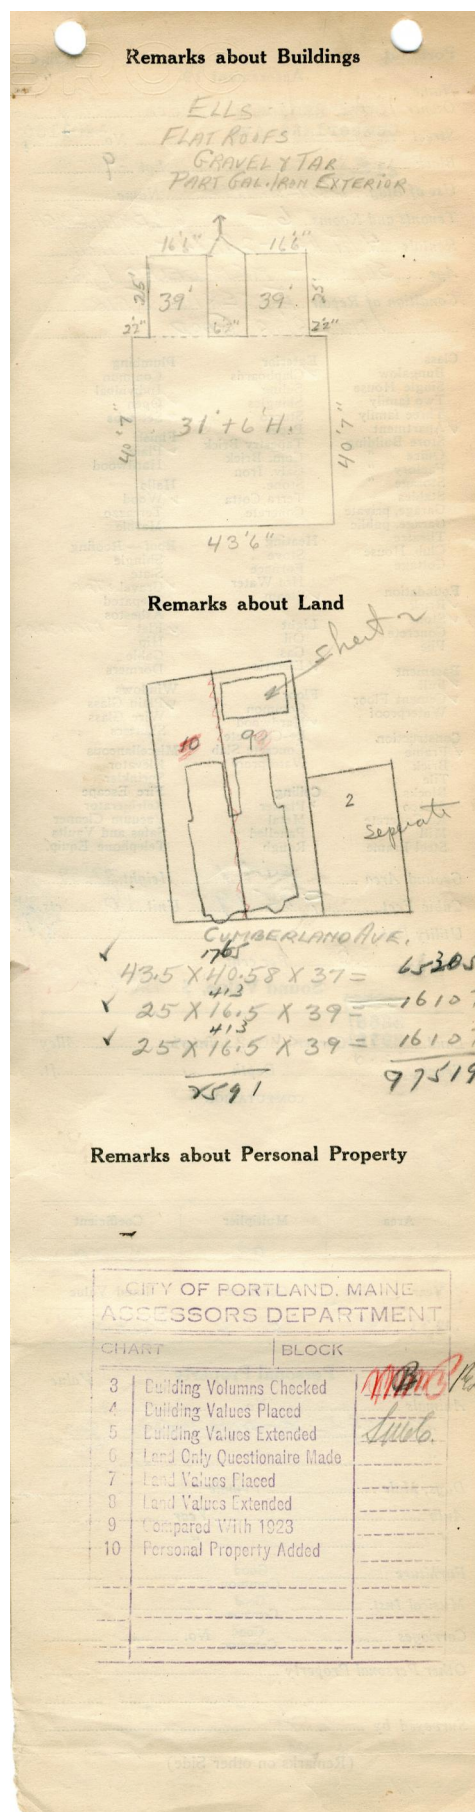 Remarks about Buildings
ELLS
FLAT ROOFS
GRAVEL & TAR
PART GAL. IRON EXTERIOR
16'6" 16'6"
25' 39' 39' 25'
2'2" 6'2" 2'2"
40'7" 31' + 6' H. 40'7"
43'6"
Remarks about Land
sheet 2
10 99
2
separate
CUMBERLAND AVE.
1765
43.5 X 40.58 X 37 = 65305
413
25 X 16.5 X 39 = 16107
413
25 X 16.5 X 39 = 16107
2591 97519
Remarks about Personal Property
CITY OF PORTLAND, MAINE
ASSESSORS DEPARTMENT
CHART BLOCK
3 Building Volumns Checked
4 Building Values Placed
5 Building Values Extended
6 Land Only Questionaire Made
7 Land Values Placed
8 Land Values Extended
9 Compared With 1923
10 Personal Property Added